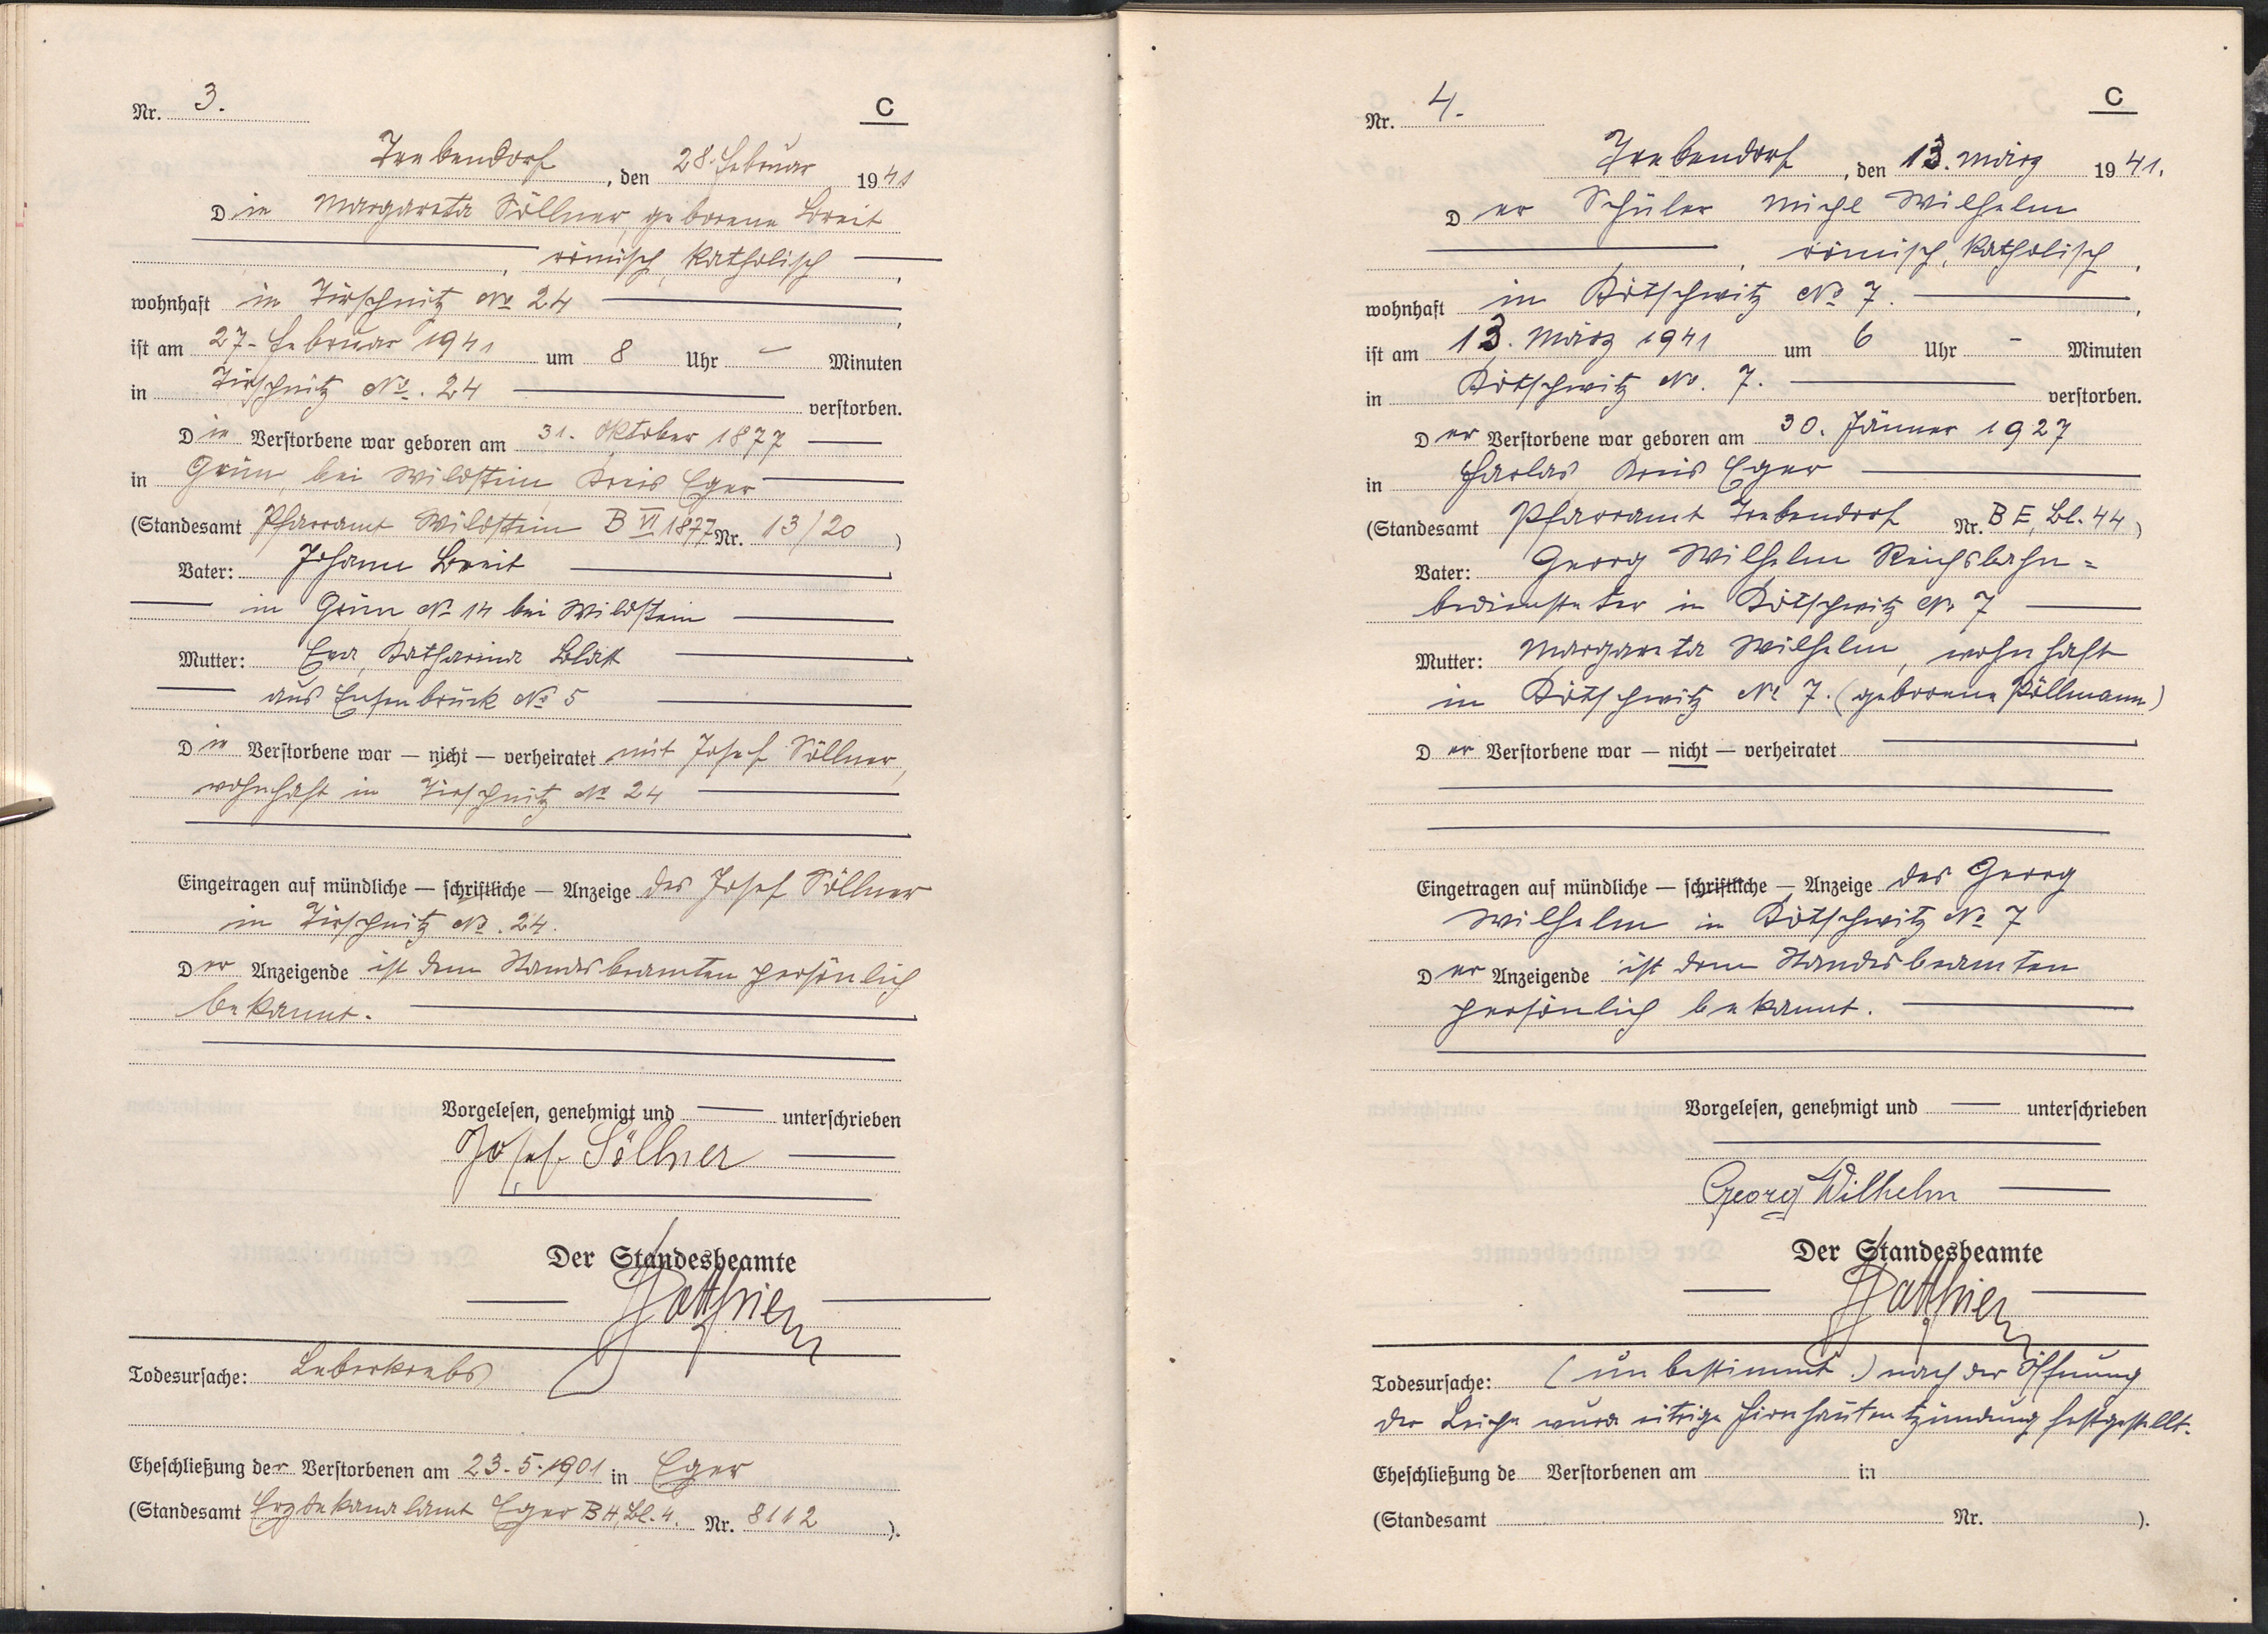 Nr. 3.
C
Trebendorf, den 28. Februar 1941
Die Margareta Söllner, geborene Breit
, römisch, katholisch ,
wohnhaft in Tirschnitz No 24 ,
ist am 27. Februar 1941 um 8 Uhr – Minuten
in Tirschnitz No. 24 verstorben.
Die Verstorbene war geboren am 31. Oktober 1877
in Grün, bei Wildstein Kreis Eger
(Standesamt Pfarramt Wildstein B VI 1877 Nr. 13/20 )
Vater: Johann Breit
in Grün No 14 bei Wildstein
Mutter: Eva, Katharina
aus No 5
Die Verstorbene war — nicht — verheiratet mit Josef Söllner,
wohnhaft in Tirschnitz No 24
Eingetragen auf mündliche — schriftliche — Anzeige des Josef Söllner
in Tirschnitz No. 24.
Der Anzeigende ist dem Standesbeamten persönlich
bekannt.
Vorgelesen, genehmigt und unterschrieben
Josef Söllner
Der Standesbeamte
Todesursache: Leberkrebs
Eheschließung der Verstorbenen am 23.5.1901 in Eger
(Standesamt Erzdekanalamt Eger B 4, Bl. 4. Nr. 8112 ).
Nr. 4.
C
Trebendorf, den 13. März 1941.
Der Schüler Michl Wilhelm
, römisch, katholisch ,
wohnhaft in Kötschwitz No 7. ,
ist am 13. März 1941 um 6 Uhr – Minuten
in Kötschwitz No. 7. verstorben.
Der Verstorbene war geboren am 30. Jänner 1927
in Harlas Kreis Eger
(Standesamt Pfarramt Trebendorf Nr. B E, Bl. 44 )
Vater: Georg Wilhelm Reichsbahn=
bediensteter in Kötschwitz No 7
Mutter: Margareta Wilhelm, wohnhaft
in Kötschwitz No 7. (geborene Pöllmann)
Der Verstorbene war — nicht — verheiratet
Eingetragen auf mündliche — schriftliche — Anzeige des Georg
Wilhelm in Kötschwitz No 7
Der Anzeigende ist dem Standesbeamten
persönlich bekannt.
Vorgelesen, genehmigt und unterschrieben
Georg Wilhelm
Der Standesbeamte
Todesursache: (unbestimmt.) nach der Öffnung
der Leiche wurde eitrige Hirnhautentzündung festgestellt.
Eheschließung de Verstorbenen am in
(Standesamt Nr. ).